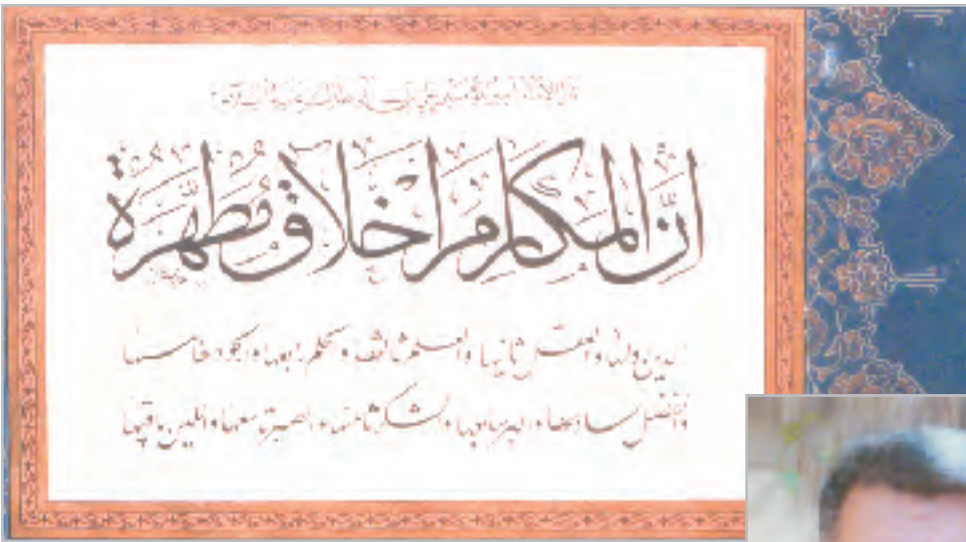 اِنَّ المَكارِمَ اَخْلاقٌ مُطَهَّرَةٌ
الدين اولها والعقل ثانيها والعلم ثالثها والحلم رابعها والجود خامسها
والفضل سادسها والبر سابعها والشكر ثامنها والصبر تاسعها واللين باقيها